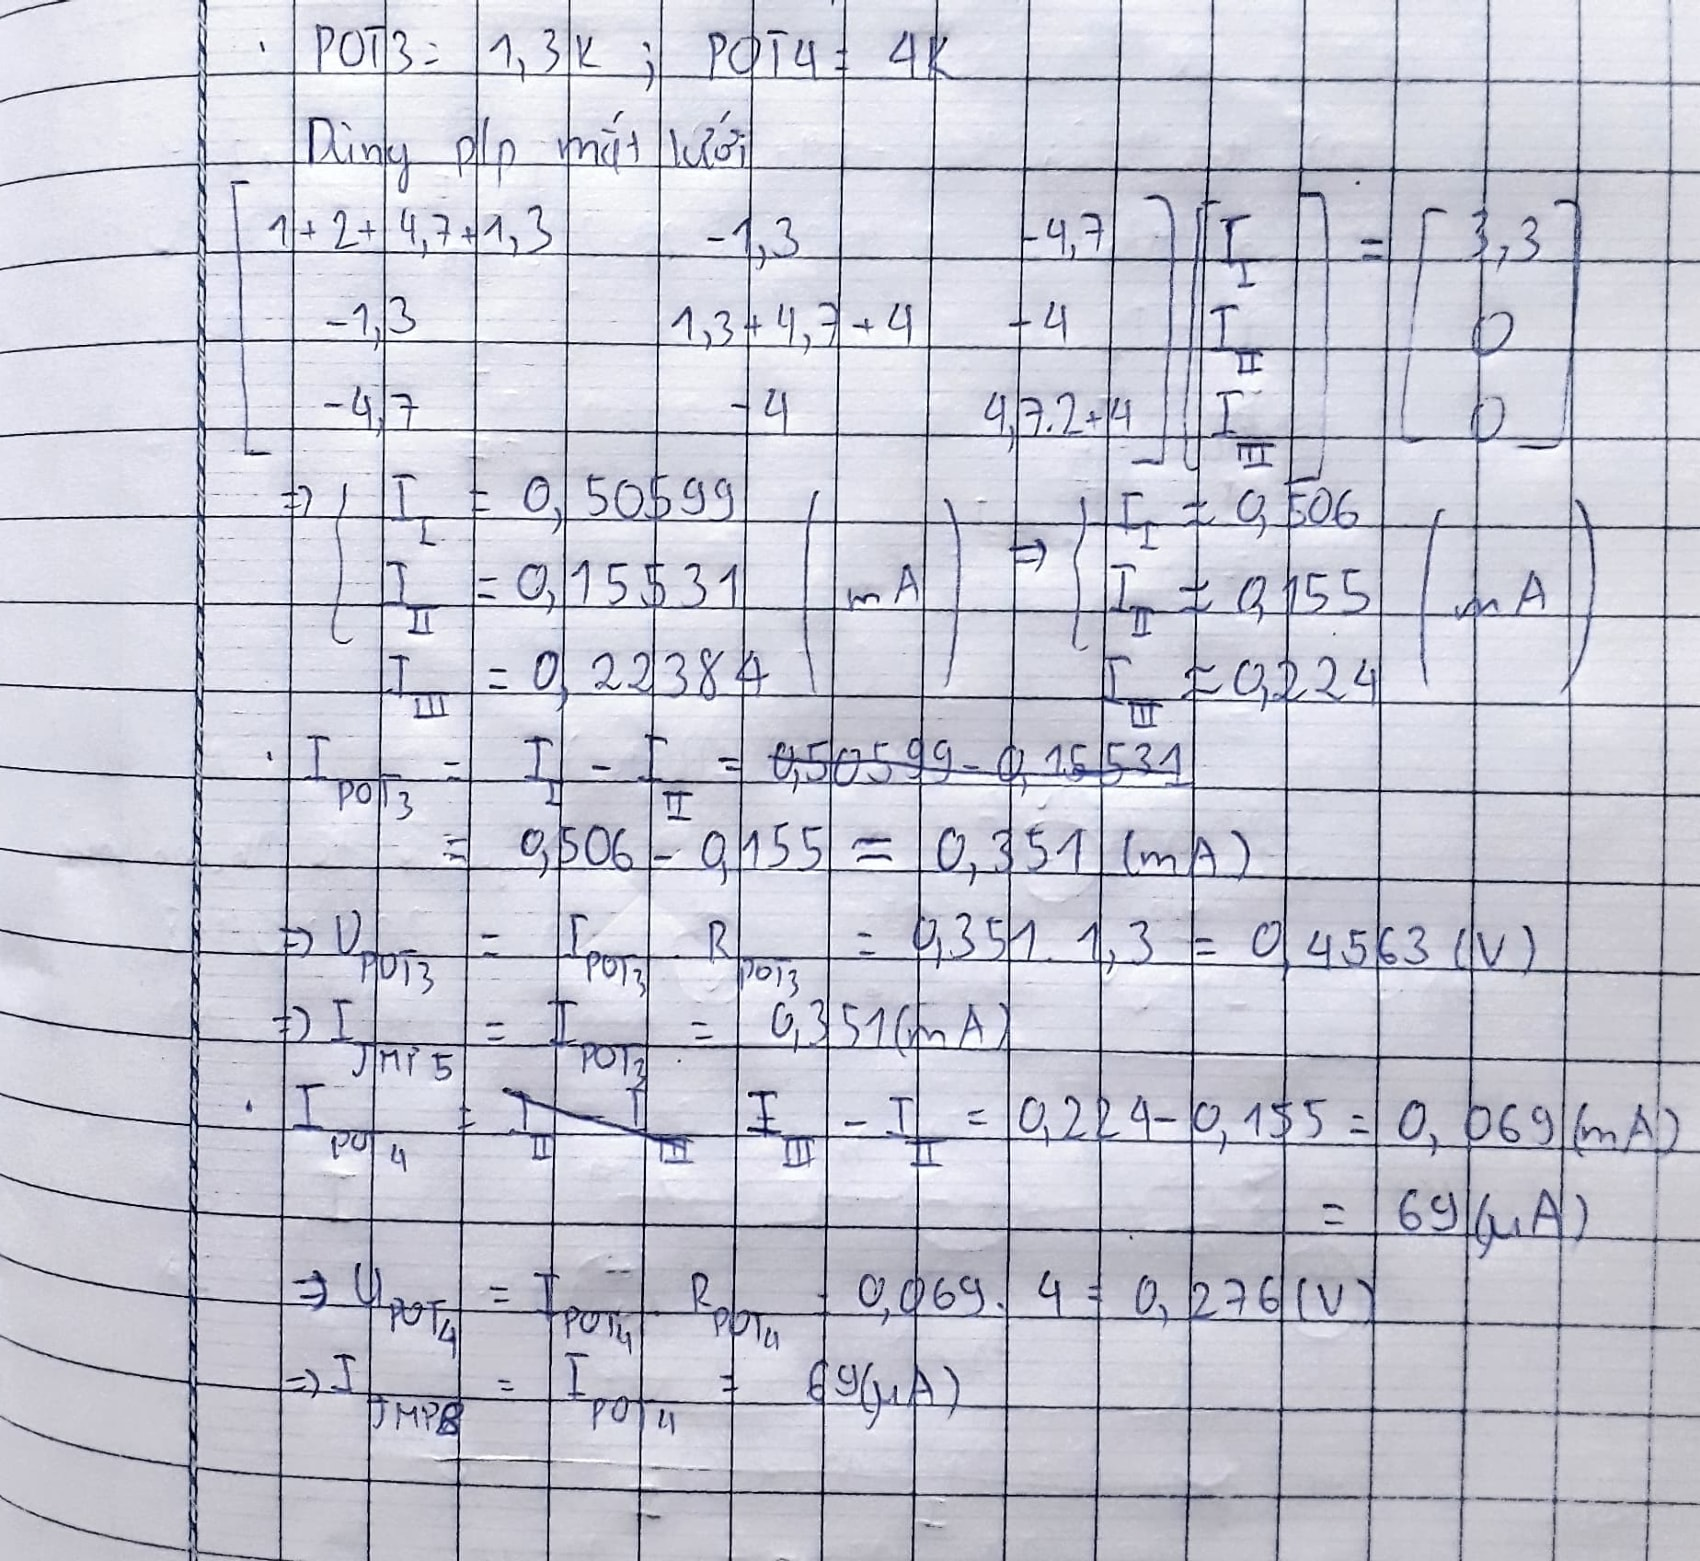 . POT3 = 1,3K ; POT4 = 4K
Dùng p/p mắt lưới
[ 1+2+4,7+1,3 -1,3 -4,7 ] [ I_I ] = [ 3,3 ]
-1,3 1,3+4,7+4 -4 I_II 0
-4,7 -4 4,7.2+4 I_III 0
=> { I_I = 0,50599 => { I_I ≈ 0,506
I_II = 0,15531 (mA) I_II ≈ 0,155 (mA)
I_III = 0,22384 I_III ≈ 0,224
. I_POT3 = I_I - I_II = 0,50599 - 0,15531
= 0,506 - 0,155 = 0,351 (mA)
=> U_POT3 = I_POT3 . R_POT3 = 0,351 . 1,3 = 0,4563 (V)
=> I_JMP5 = I_POT3 = 0,351 (mA)
. I_POT4 = I_II - I_III I_III - I_II = 0,224 - 0,155 = 0,069 (mA)
= 69 (μA)
=> U_POT4 = I_POT4 . R_POT4 = 0,069 . 4 = 0,276 (V)
=> I_JMP8 = I_POT4 = 69 (μA)